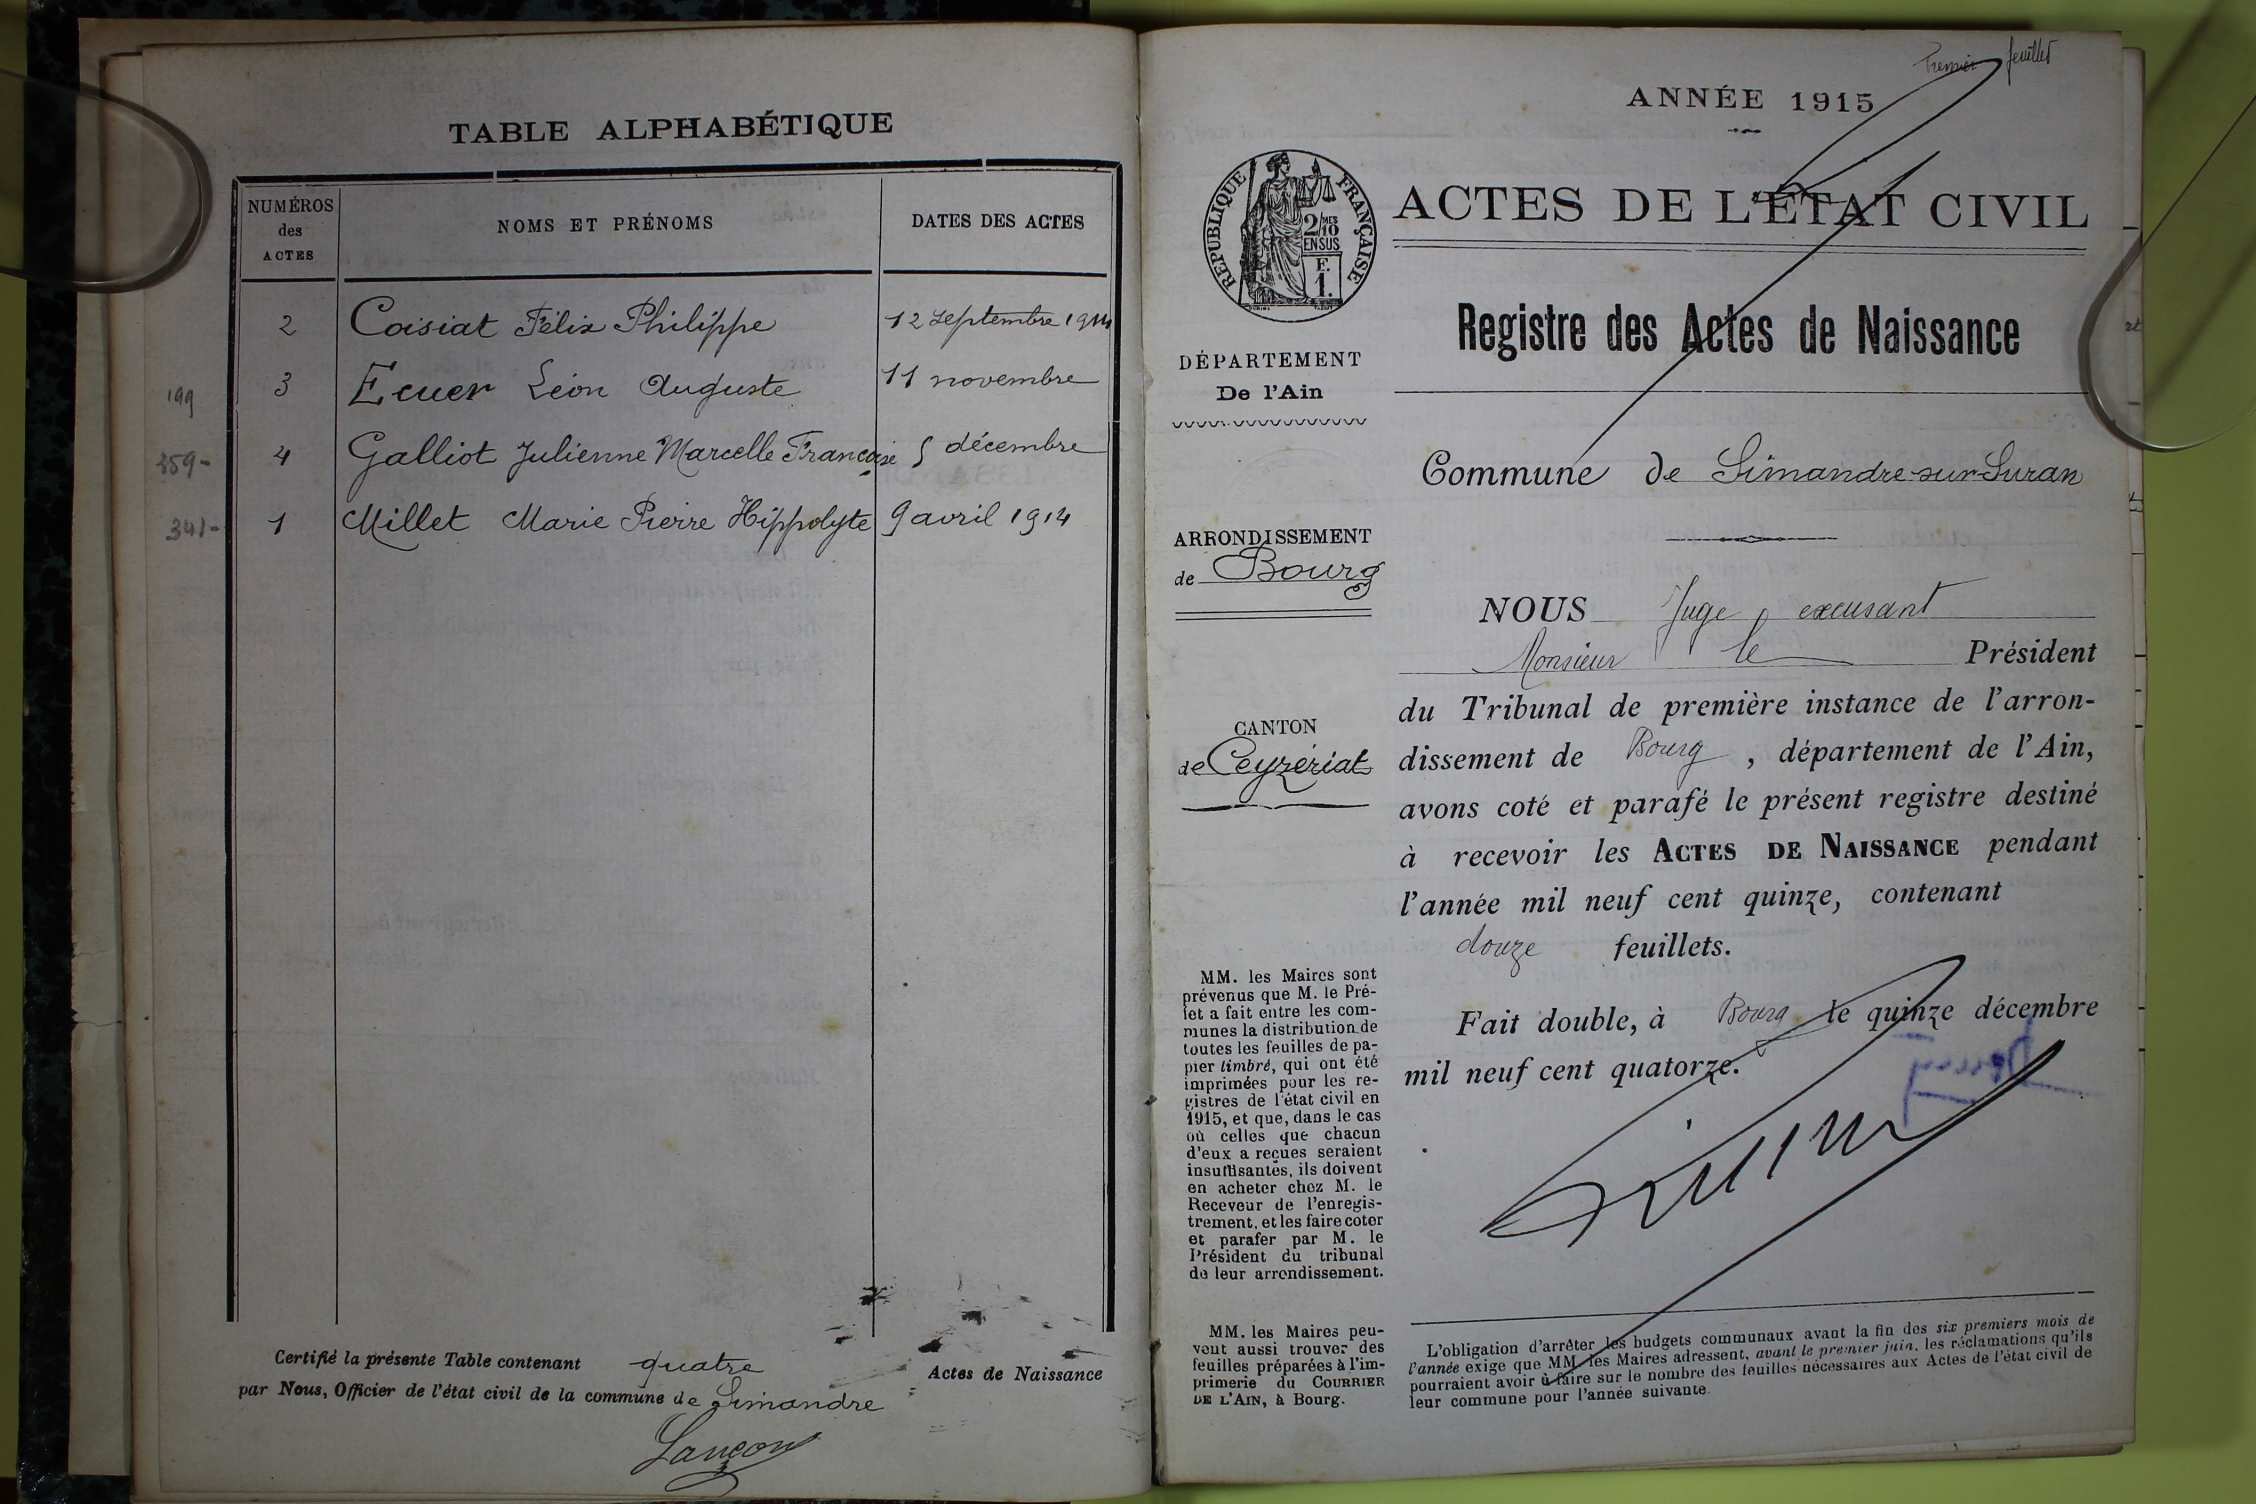 TABLE ALPHABÉTIQUE
NUMÉROS
des
ACTES
NOMS ET PRÉNOMS
DATES DES ACTES
2 Coisiat Félix Philippe 12 septembre 1914
199 3 Ecuer Léon Auguste 11 novembre
359- 4 Galliot Julienne Marcelle Françoise 5 décembre
341- 1 Millet Marie Pierre Hippolyte 9 avril 1914
Certifié la présente Table contenant quatre Actes de Naissance
par Nous, Officier de l'état civil de la commune de Simandre
Lançon
Premier feuillet
ANNÉE 1915
RÉPUBLIQUE FRANÇAISE
2/10 MES
EN SUS
F.
1.
ACTES DE L'ÉTAT CIVIL
Registre des Actes de Naissance
DÉPARTEMENT
De l'Ain
Commune de Simandre-sur-Suran
ARRONDISSEMENT
de Bourg
CANTON
de Ceyzériat
NOUS Juge excusant
Monsieur le Président
du Tribunal de première instance de l'arron-
dissement de Bourg, département de l'Ain,
avons coté et parafé le présent registre destiné
à recevoir les ACTES DE NAISSANCE pendant
l'année mil neuf cent quinze, contenant
douze feuillets.
Fait double, à Bourg le quinze décembre
mil neuf cent quatorze.
MM. les Maires sont
prévenus que M. le Pré-
fet a fait entre les com-
munes la distribution de
toutes les feuilles de pa-
pier timbré, qui ont été
imprimées pour les re-
gistres de l'état civil en
1915, et que, dans le cas
où celles que chacun
d'eux a reçues seraient
insuffisantes, ils doivent
en acheter chez M. le
Receveur de l'enregis-
trement, et les faire coter
et parafer par M. le
Président du tribunal
de leur arrondissement.
MM. les Maires peu-
vent aussi trouver des
feuilles préparées à l'im-
primerie du COURRIER
DE L'AIN, à Bourg.
L'obligation d'arrêter les budgets communaux avant la fin des six premiers mois de
l'année exige que MM. les Maires adressent, avant le premier juin, les réclamations qu'ils
pourraient avoir à faire sur le nombre des feuilles nécessaires aux Actes de l'état civil de
leur commune pour l'année suivante.